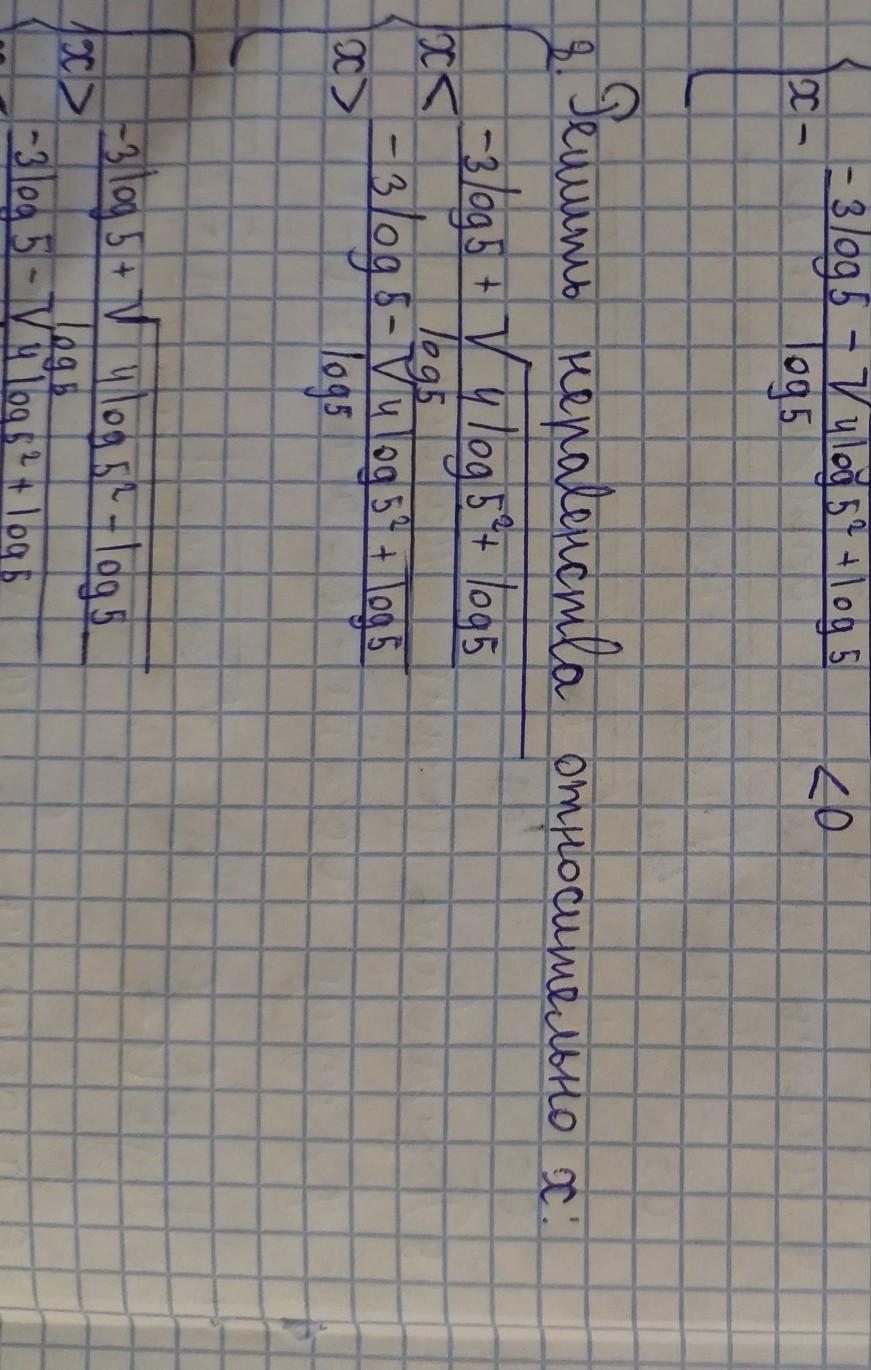 x - (-3log5 - √4log5² + log5) / log5 < 0
8. Решить неравенства относительно x:
x < (-3log5 + √4log5² + log5) / log5
x > (-3log5 - √4log5² + log5) / log5
x > (-3log5 + √4log5² - log5) / log5
-3log5 - √4log5² + log5